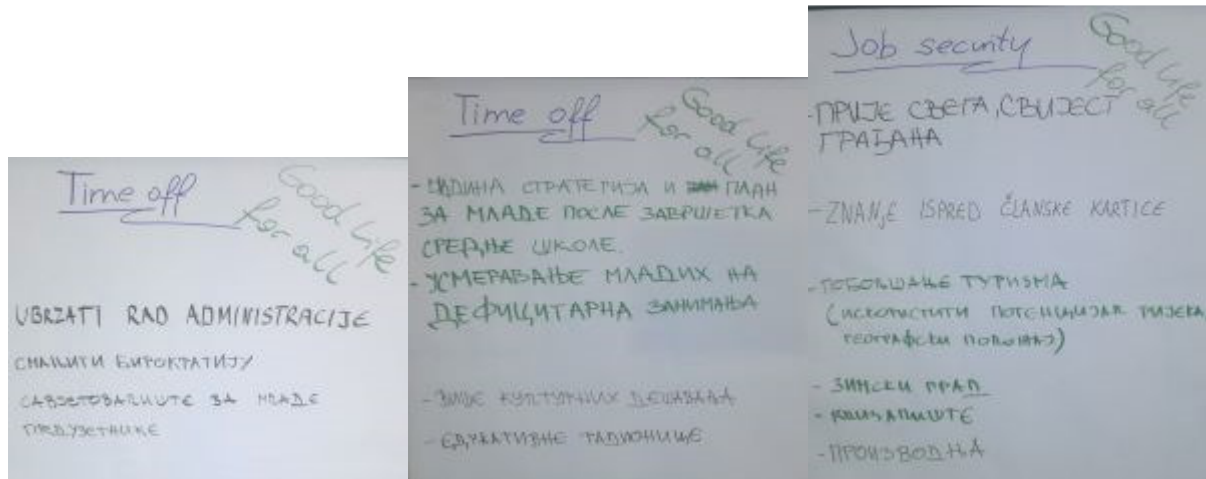 Time off
Good life
for all
UBRZATI RAD ADMINISTRACIJE
СМАЊИТИ БИРОКРАТИЈУ
САВЈЕТОВАЛИШТЕ ЗА МЛАДЕ
ПРЕДУЗЕТНИКЕ
Time off
Good life
for all
СТРАТЕГИЈА И ПЛАН
ЗА МЛАДЕ ПОСЛЕ ЗАВРШЕТКА
СРЕДЊЕ ШКОЛЕ.
- УСМЕРАВАЊЕ МЛАДИХ НА
ДЕФИЦИТАРНА ЗАНИМАЊА
- ВИШЕ КУЛТУРНИХ ДЕШАВАЊА
- ЕДУКАТИВНЕ РАДИОНИЦЕ
Job security
Good life
for all
- ПРИЈЕ СВЕГА, СВИЈЕСТ
ГРАЂАНА
- ZNANJE ISPRED ČLANSKE KARTICE
- ПОБОЉШАЊЕ ТУРИЗМА
(ИСКОРИСТИТИ ПОТЕНЦИЈАЛ РИЈЕКА,
ГЕОГРАФСКИ ПОЛОЖАЈ)
- ЗИМСКИ ГРАД
- КЛИЗАЛИШТЕ
- ПРОИЗВОДЊА